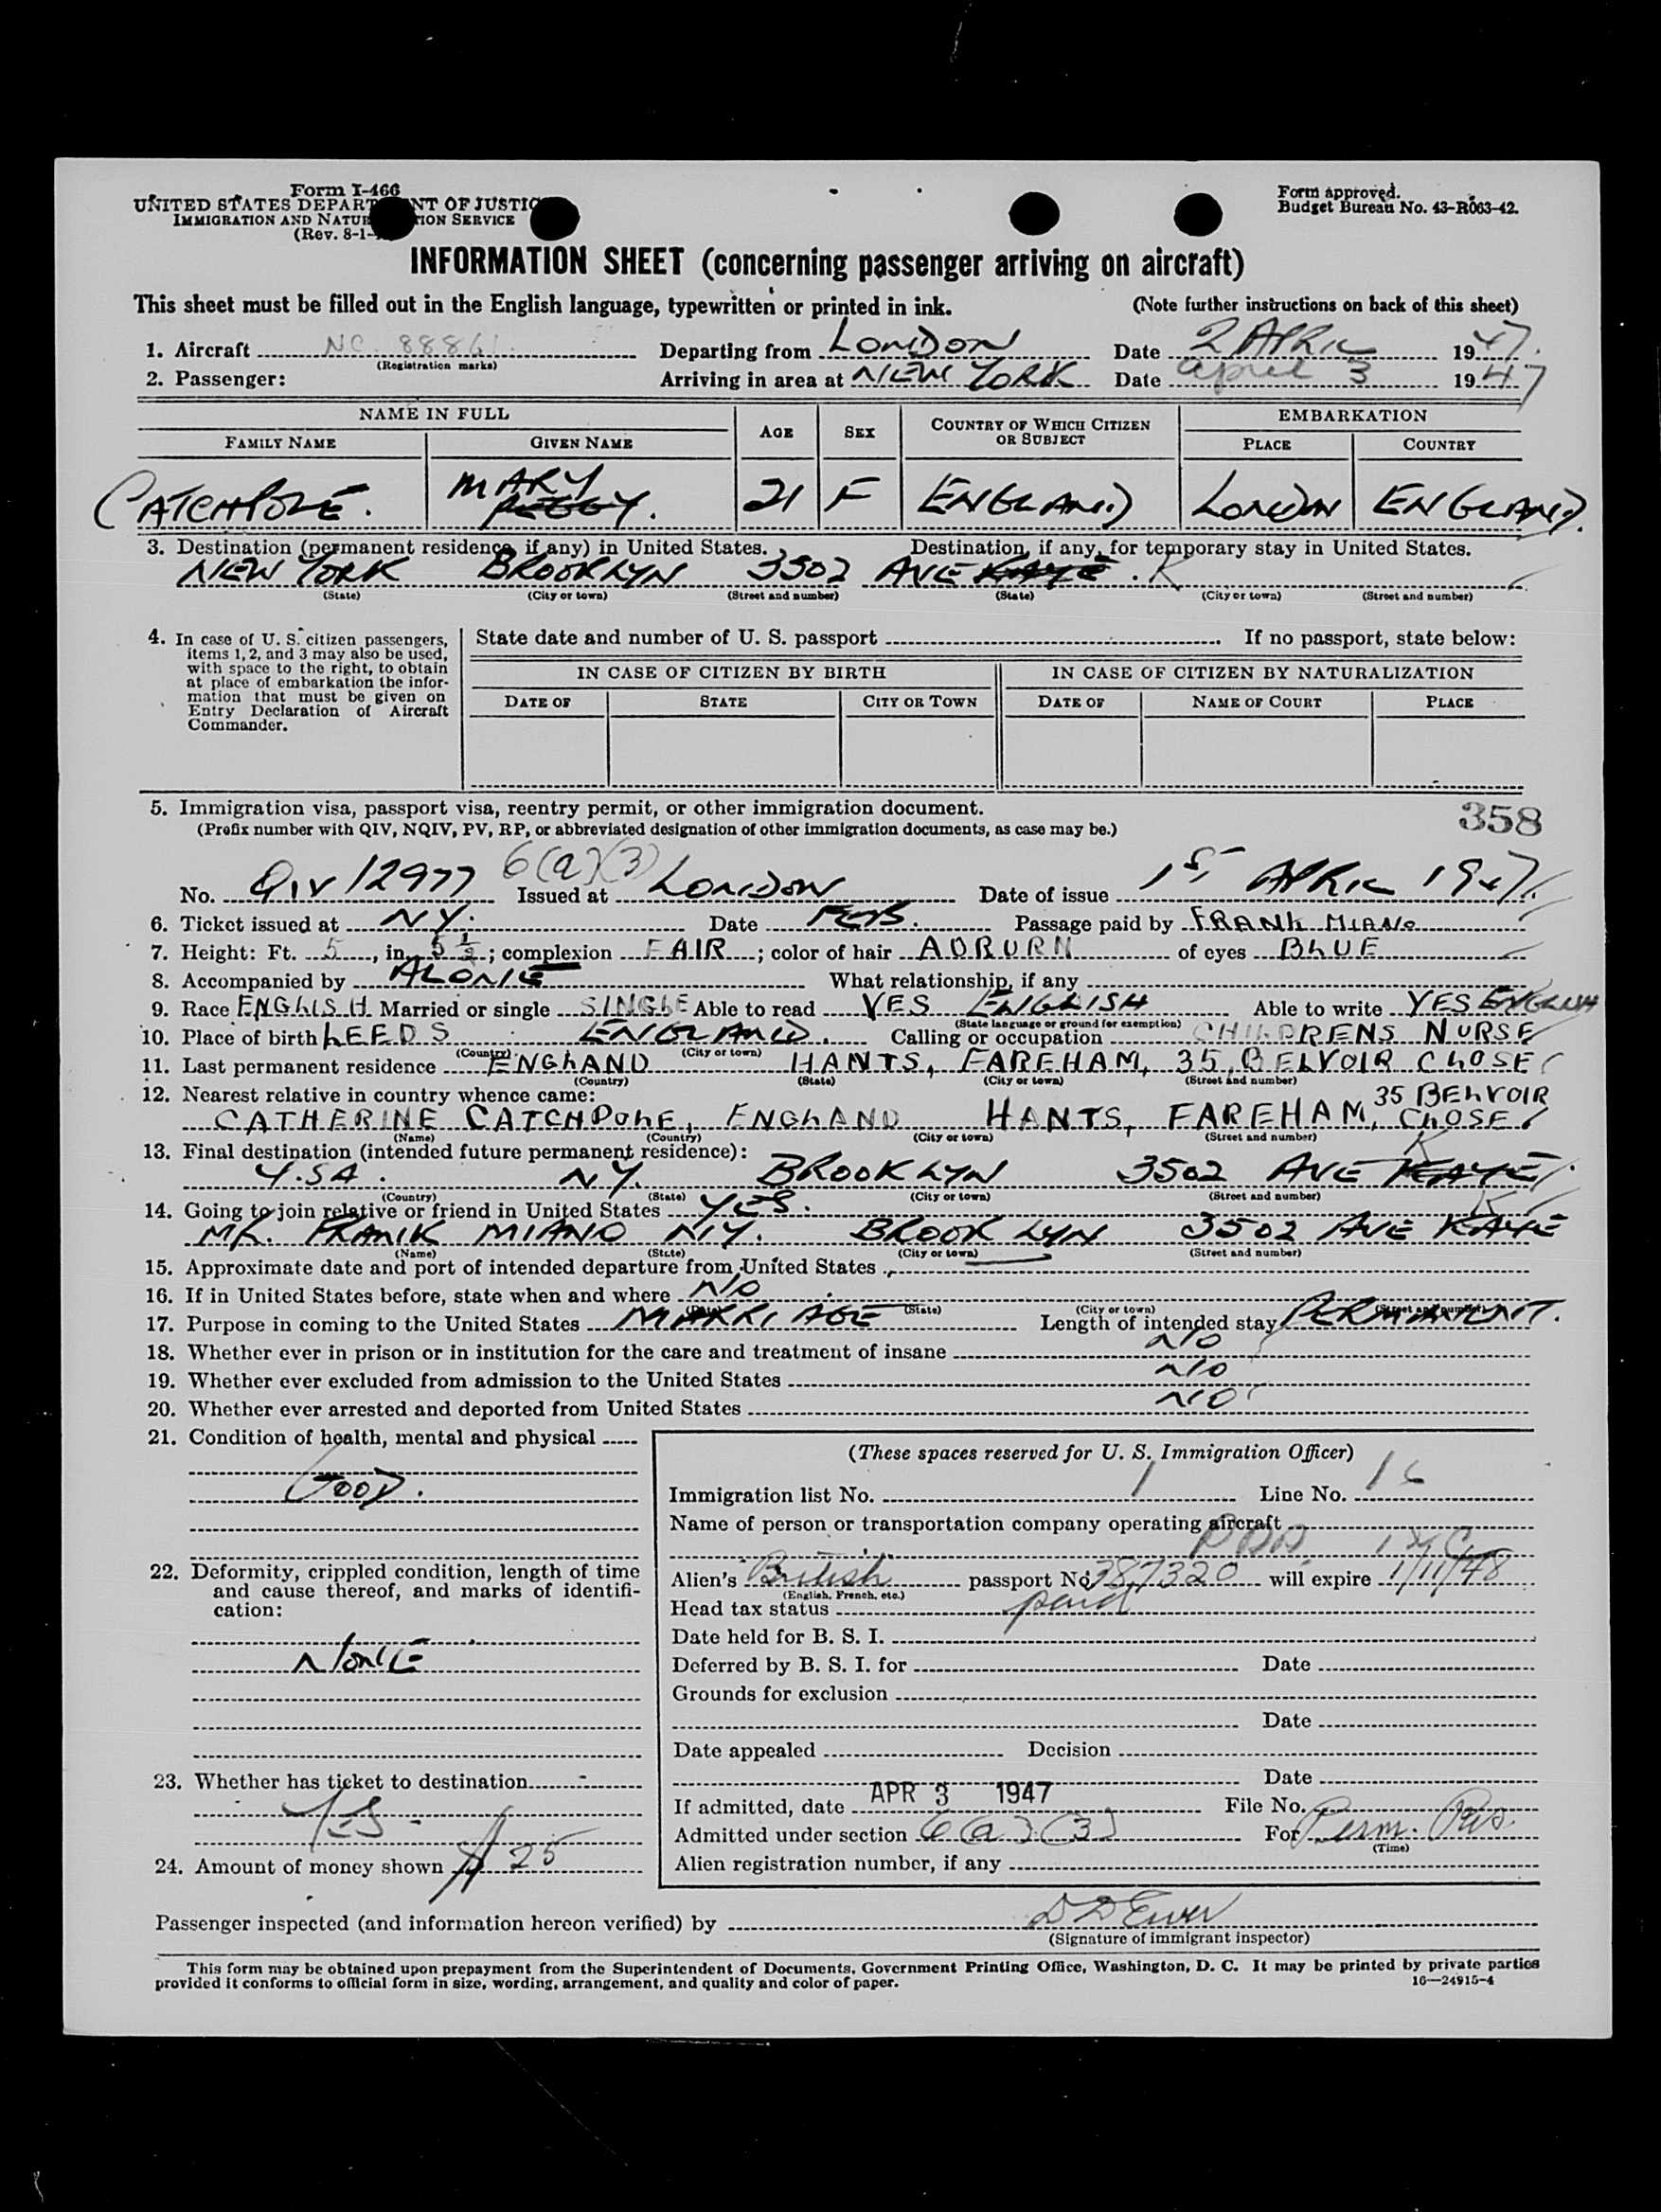 Form I-466
UNITED STATES DEPARTMENT OF JUSTICE
IMMIGRATION AND NATURALIZATION SERVICE
(Rev. 8-1-
Form approved.
Budget Bureau No. 43-R063-42.
INFORMATION SHEET (concerning passenger arriving on aircraft)
This sheet must be filled out in the English language, typewritten or printed in ink. (Note further instructions on back of this sheet)
1. Aircraft NC 88861 Departing from LONDON Date 2 APRIL 1947.
(Registration marks)
2. Passenger: Arriving in area at NEW YORK Date April 3 1947
NAME IN FULL AGE SEX COUNTRY OF WHICH CITIZEN OR SUBJECT EMBARKATION
FAMILY NAME GIVEN NAME PLACE COUNTRY
MARY
CATCHPOLE. PEGGY. 21 F ENGLAND LONDON ENGLAND.
3. Destination (permanent residence, if any) in United States. Destination, if any, for temporary stay in United States.
NEW YORK BROOKLYN 3502 AVE KAYE. K
(State) (City or town) (Street and number) (State) (City or town) (Street and number)
4. In case of U. S. citizen passengers, items 1, 2, and 3 may also be used, with space to the right, to obtain at place of embarkation the information that must be given on Entry Declaration of Aircraft Commander.
State date and number of U. S. passport If no passport, state below:
IN CASE OF CITIZEN BY BIRTH IN CASE OF CITIZEN BY NATURALIZATION
DATE OF STATE CITY OR TOWN DATE OF NAME OF COURT PLACE
5. Immigration visa, passport visa, reentry permit, or other immigration document. 358
(Prefix number with QIV, NQIV, PV, RP, or abbreviated designation of other immigration documents, as case may be.)
No. QIV 12977 6(a)(3) Issued at LONDON Date of issue 1ST APRIL 1947
6. Ticket issued at NY. Date FEB. Passage paid by FRANK MIANO
7. Height: Ft. 5, in. 5 1/2; complexion FAIR; color of hair AUBURN of eyes BLUE
8. Accompanied by ALONE What relationship, if any
9. Race ENGLISH Married or single SINGLE Able to read YES ENGLISH Able to write YES ENGLISH
(State language or ground for exemption)
10. Place of birth LEEDS ENGLAND. Calling or occupation CHILDRENS NURSE
(Country) (City or town)
11. Last permanent residence ENGLAND HANTS, FAREHAM, 35, BELVOIR CLOSE
(Country) (State) (City or town) (Street and number)
12. Nearest relative in country whence came: 35 BELVOIR
CATHERINE CATCHPOLE, ENGLAND HANTS, FAREHAM, CLOSE
(Name) (Country) (City or town) (Street and number)
13. Final destination (intended future permanent residence): K
U.S.A. N.Y. BROOKLYN 3502 AVE KAYE
(Country) (State) (City or town) (Street and number)
14. Going to join relative or friend in United States YES. K
MR. FRANK MIANO N.Y. BROOKLYN 3502 AVE KAYE
(Name) (State) (City or town) (Street and number)
15. Approximate date and port of intended departure from United States
16. If in United States before, state when and where NO
(Date) (State) (City or town) (Street and number)
17. Purpose in coming to the United States MARRIAGE Length of intended stay PERMANENT.
18. Whether ever in prison or in institution for the care and treatment of insane NO
19. Whether ever excluded from admission to the United States NO
20. Whether ever arrested and deported from United States NO
21. Condition of health, mental and physical
GOOD.
22. Deformity, crippled condition, length of time and cause thereof, and marks of identification:
NONE
23. Whether has ticket to destination
YES
24. Amount of money shown $25
(These spaces reserved for U. S. Immigration Officer)
Immigration list No. 1 Line No. 16
Name of person or transportation company operating aircraft
Alien's British passport No. 387320 will expire 1/11/48
(English, French, etc.)
Head tax status paid
Date held for B. S. I.
Deferred by B. S. I. for Date
Grounds for exclusion
Date
Date appealed Decision
Date
If admitted, date APR 3 1947 File No.
Admitted under section 6(a)(3) For Perm. Res.
(Time)
Alien registration number, if any
Passenger inspected (and information hereon verified) by
(Signature of immigrant inspector)
This form may be obtained upon prepayment from the Superintendent of Documents, Government Printing Office, Washington, D. C. It may be printed by private parties
provided it conforms to official form in size, wording, arrangement, and quality and color of paper. 16—24915-4